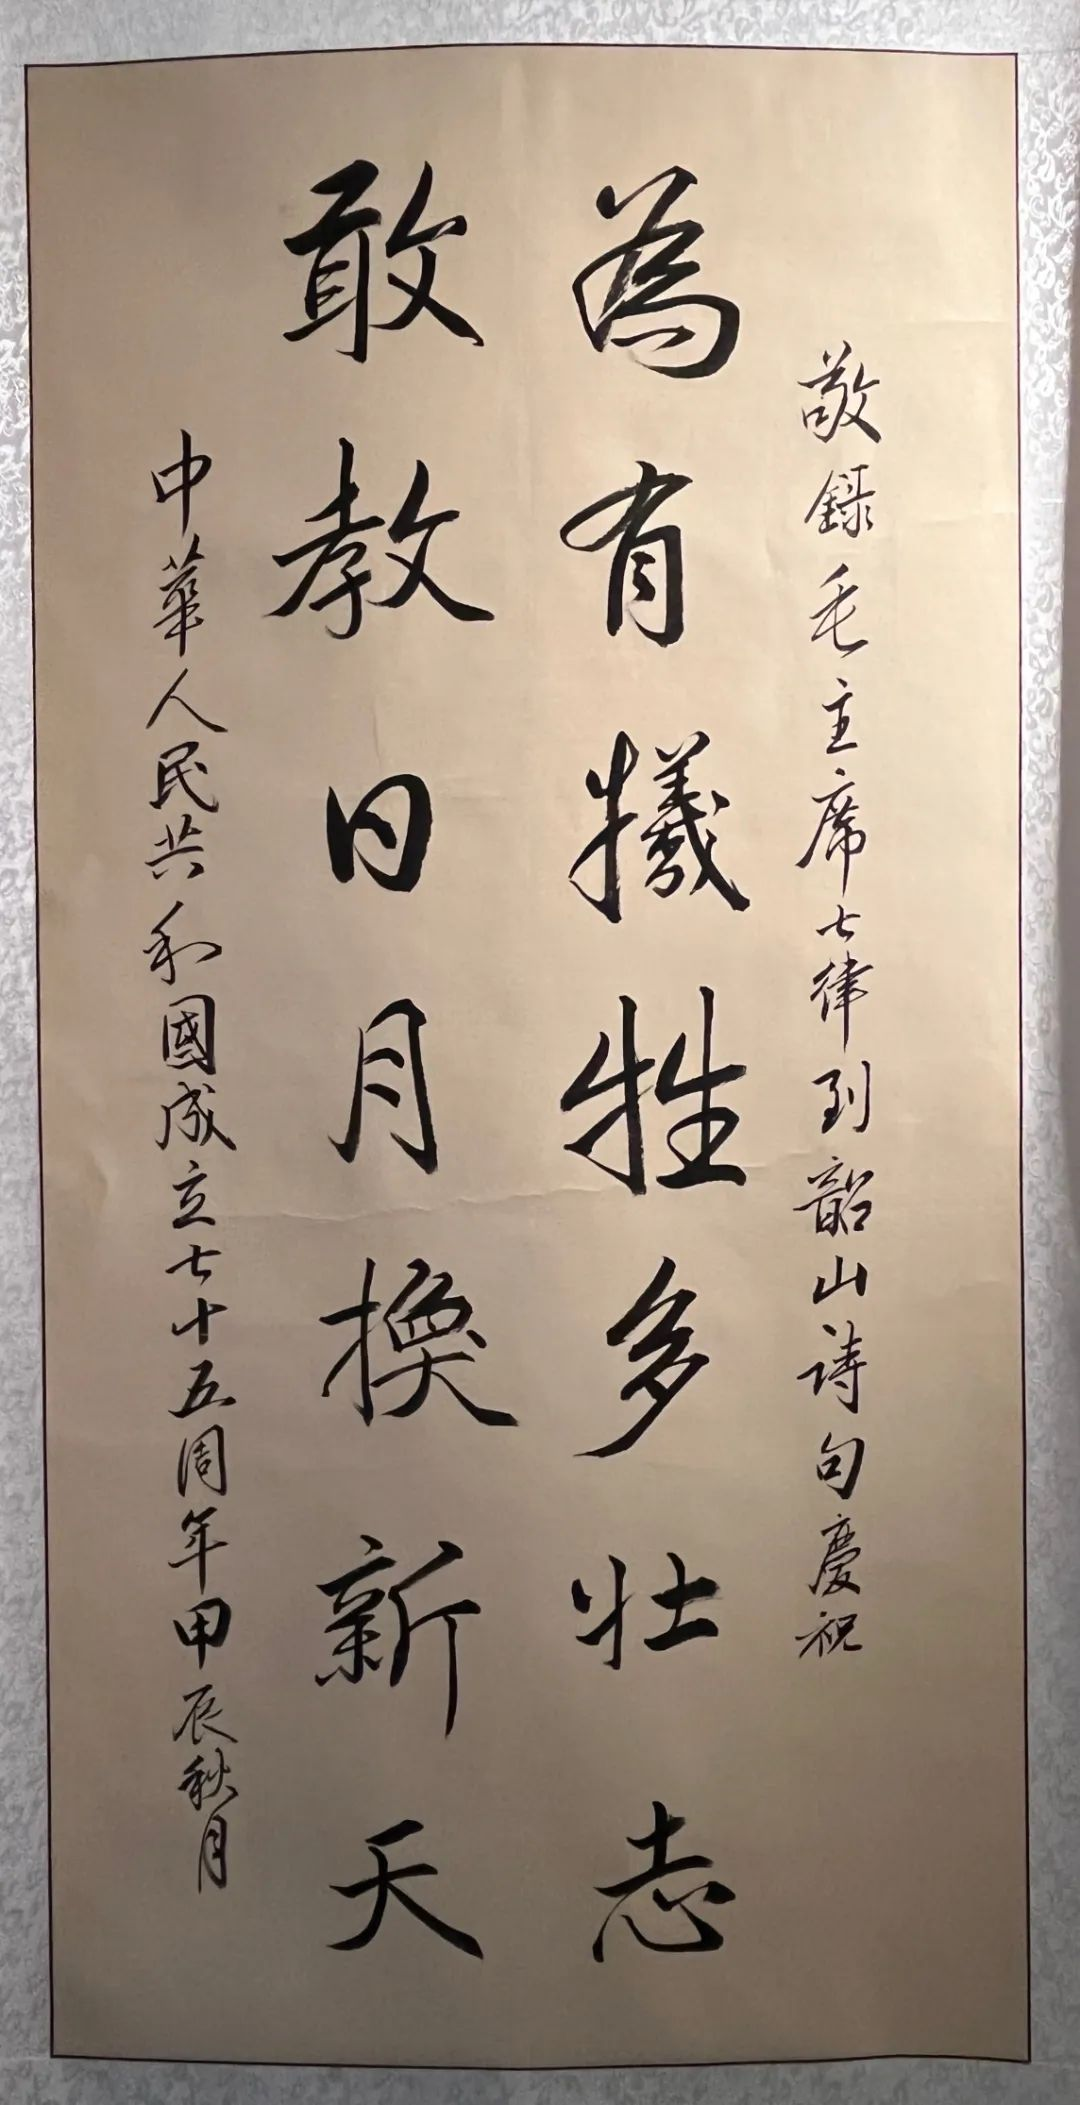 敬錄毛主席七律到韶山詩句慶祝
為有犧牲多壯志
敢教日月換新天
中華人民共和國成立七十五周年甲辰秋月